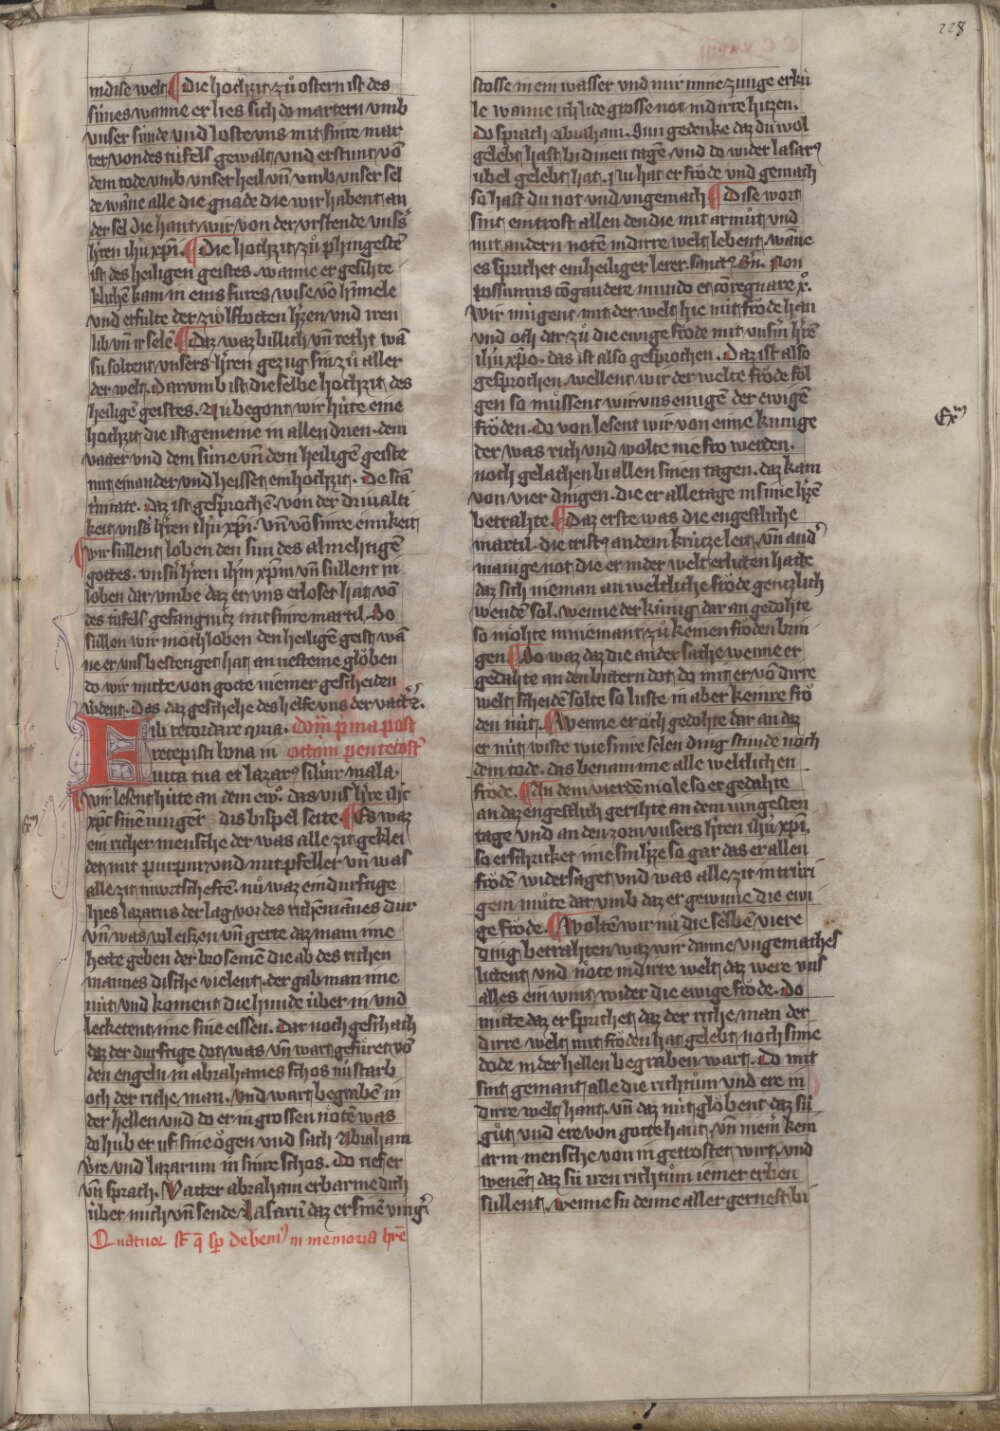 228
in dise welt. Die hochzit zuͦ ostern ist des
sunes wanne er lies sich do martern vmb
vnser sunde vnd loste vns mit sinre mar
ter von des tufels gewalt vnd erstunt võ
dem tode vmb vnser heil vñ vmb vnser sel
de wãne alle die gnade die wir habent an
der sel die hant wir von der vrstende vnsˢ
hˢren ihũ xp̃i. Die hochzit zuͦ phingestẽ
ist des heiligen geistes. wanne er gesihte
klichẽ kam in eins fures wise võ himele
vnd erfulte der zwoͤlfbotten hˢzen vnd iren
lib vñ ir selẽ. Daz waz billich vñ recht wã
su soltent vnsers hˢren gezug sin zuͦ aller
der welt. Dar vmb ist die selbe hochzit des
heiligẽ geistes. Nu begont wir hute eine
hochzit die ist gemeine in allen drien. dem
vatter vnd dem sune vñ dem heiligẽ geiste
mit einander vnd heisset ein hochzit. De scã
trinitate. daz ist gesprochẽ von der driualti
keit vnsˢ hˢren ihũ xp̃i. vñ võ sinre einikeit
wir sullent loben den sun des almehtigẽ
gottes. vnsˢn hˢren ihm̃ xp̃m vñ sullent in
loben dar vmbe daz er vns erloset hat võ
des tufels gefangnuz mit sinre martil. So
sullen wir moͤch loben den heiligẽ geist wã
ne er vns bestetiget hat an uesteme gloͤben
do wir mitte von gotte niemer gescheiden
wdent. Das daz geschehe des helfe vns der vattˢ.
Fili recordare quia. Dom̃ p̃ma post
recepisti bona in octauã pentecostˢ
uita tua et lazarˀ silˢr mala.
wir lesent hute an dem ewˢ. das vns hˢre ihc̃
xpc̃ sinẽ iungerˢ dis bispel seite. Es waz
ein richer mensche der was alle zit geklei
det mit purpur vnd mit pfeller vñ was
alle zit in wrtscheftẽ. nuͦ waz ein durftige
hies lazarus der lag vor des richẽ mãnes dur
vñ was vol eissen vñ gerte daz mam ime
hette geben der brosemẽ die ab des richen
mannes dische vielent. der gab man ime
nut vnd koment die hunde uͤber in vnd
lecketent ime sine eissen. Dar noch geschach
daz der durftige dot was vñ wart gefuͤret võ
den engeln in abrahames schos nu starb
och der riche man. vnd wart begrabẽ in
der hellen vnd do er in grossen noͤtẽ was
do hub er uf sine oͤgen vnd sach Abraham
vˢre vnd lazarum in sinre schos. Do rief er
vñ sprach. Vatter abraham erbarme dich
uͤber mich vñ sende Lasarũ daz er sinẽ vingˢ
Quatuor st̃ q̃ sp̃ debemˀ in memoria hr̃e
stosse in ein wasser vnd mir mine zunge erkuͤ
le wanne ich lide grosse not in dirre hitzen.
Do sprach Abraham. Sun gedenke daz du wol
gelebt hast bi dinen tagẽ vnd do wider lasarˀ
ubel gelebt hat. Nu hat er froͤde vnd gemach
so hast du not vnd vngemach. Dise wort
sint ein trost allen den die mit armuͤt vnd
mit andern notẽ in dirre welt lebent. wãne
es sprichet ein heiliger lerer. sanctˀ Bñ. Non
possumus cõgaudere mundo et cõregnare x̊.
Wir mugent mit der welt hie nut froͤde han
vnd och dar zuͦ die ewige froͤde mit vnsˢm hˢrẽ
ihũ xp̃o. das ist also gesprochen. Daz ist also
gesprochen. wellent wir der welte froͤde fol
gen so muͤssent wir vns enigen der ewigẽ
froͤden. Do von lesent wir von eime kunige
der was rich vnd wolte nie fro werden.
noch gelachen bi allen sinen tagen. daz kam
von vier dingen. die er alle tage in sime hˢzẽ
betrahte. Daz erste was die engestliche
martil. die cristˀ an dem kruͤtze leit. vñ andˢ
manige not die er in der welt erlitten hatte
daz sich nieman an weltliche froͤde gentzlich
wendẽ sol. wenne der kuͤnig dar an gedohte
so moͤhte in niemant zuͦ keinen froͤden brin
gen. So waz daz die ander sache wenne er
gedahte an den bittern dot. do mit er võ dirre
welt scheidẽ solte so luste in aber keinre froͤ
den nut. Wenne er och gedohte dar an daz
er nut wiste wie sinre selen ding stunde noch
dem tode. das benam ime alle weltlichen
froͤde. An dem vierdẽ mole so er gedahte
an daz engestlich gerihte an dem iungesten
tage vnd an den zorn vnsers hˢren ihũ xp̃i.
so erschricket ime sin hˢze so gar das er allen
froͤdẽ widersaget vnd was alle zit in truri
gem muͤte dar vmb daz er gewinne die ewi
ge froͤde. Woltẽ wir nu die selbẽ viere
ding betrahten waz wir danne vngemaches
littent vnd noͤte in dirre welt daz were vns
alles ein wint wider die ewige froͤde. Do
mitte daz er sprichet. daz der riche man der
dirre welt mit froͤden hat gelebt noch sime
dode in der hellen begraben wart. Do mit
sint gemant alle die richtuͦm vnd ere in
dirre welt hant. vñ daz nut gloͤbent daz suͤ
guͦt vnd ere von gotte hant. vñ mein kein
arm mensche von in getrostet wirt. vnd
wenẽt daz suͤ iren richtuͦm iemer erben
sullent. wenne su denne aller gernest bi
Exˀm